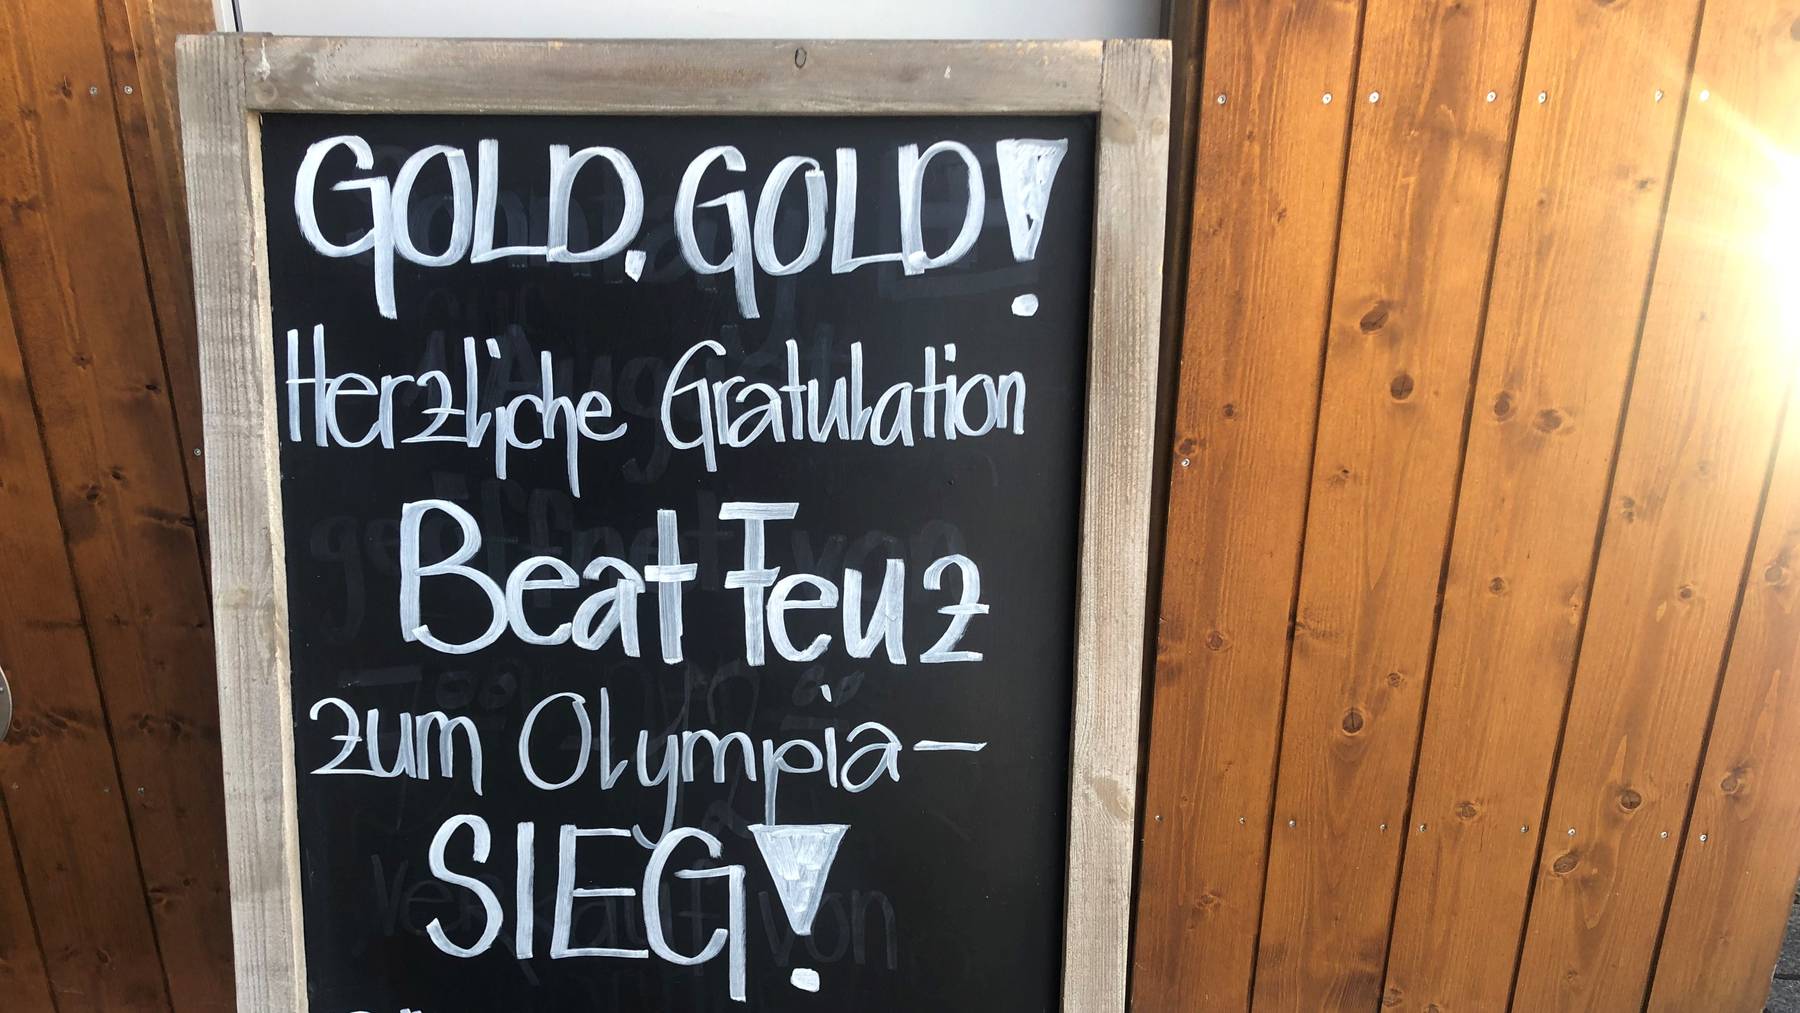 GOLD, GOLD!
Herzliche Gratulation
Beat Feuz
zum Olympia-
SIEG!